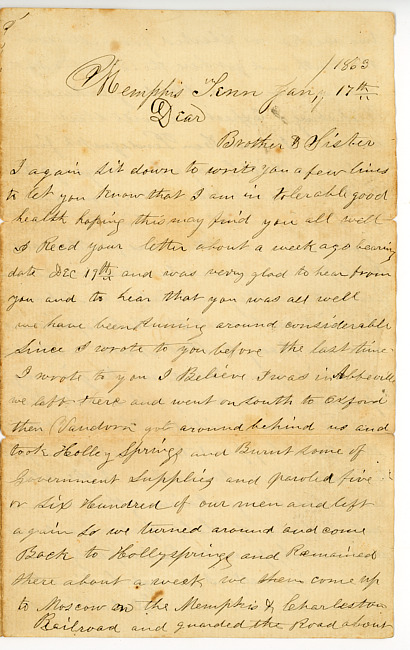 1863
Memphis Tenn Jany 17th
Dear
Brother & Sister
I again sit down to write you a few lines
to let you know that I am in tolerable good
health hoping this may find you all well
I Recd your letter about a week ago bearing
date Dec 19th and was verry glad to hear from
you and to hear that you was all well
we have been running around considerable
since I wrote to you before the last time
I wrote to you I Believe I was in Abbeville
we left there and went on south to Oxford
then Vandorn got around behind us and
took Holley Springs and Burnt some of
Government Supplies and paroled five
or six Hundred of our men and left
again so we turned around and come
Back to Hollysprings and Remained
there about a week we then come up
to Moscow on the Memphis & Charleston
Railroad and guarded the Road about